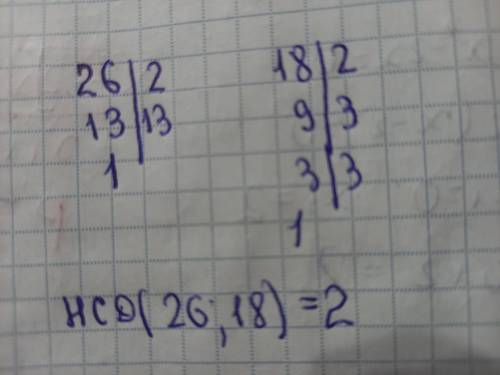 26|2 18|2
13|13 9|3
1 3|3
1
НСД(26;18)=2